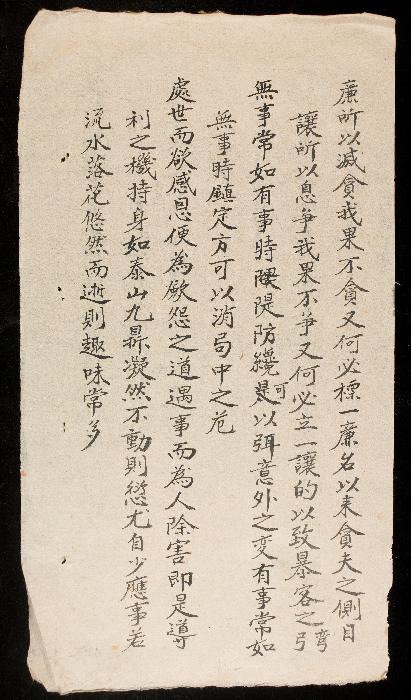 廉所以減貪我果不貪又何必標一廉名以来貪夫之側目
讓所以息爭我果不爭又何必立一讓的以致暴客之弓彎
無事常如有事時隄防纔是可以弭意外之変有事常如
無事時鎮定方可以消局中之危
處世而欲感恩便為歛怨之道遇事而為人除害即是導
利之機持身如泰山九鼎凝然不動則愆尤自少應事若
流水落花悠然而逝則趣味常多